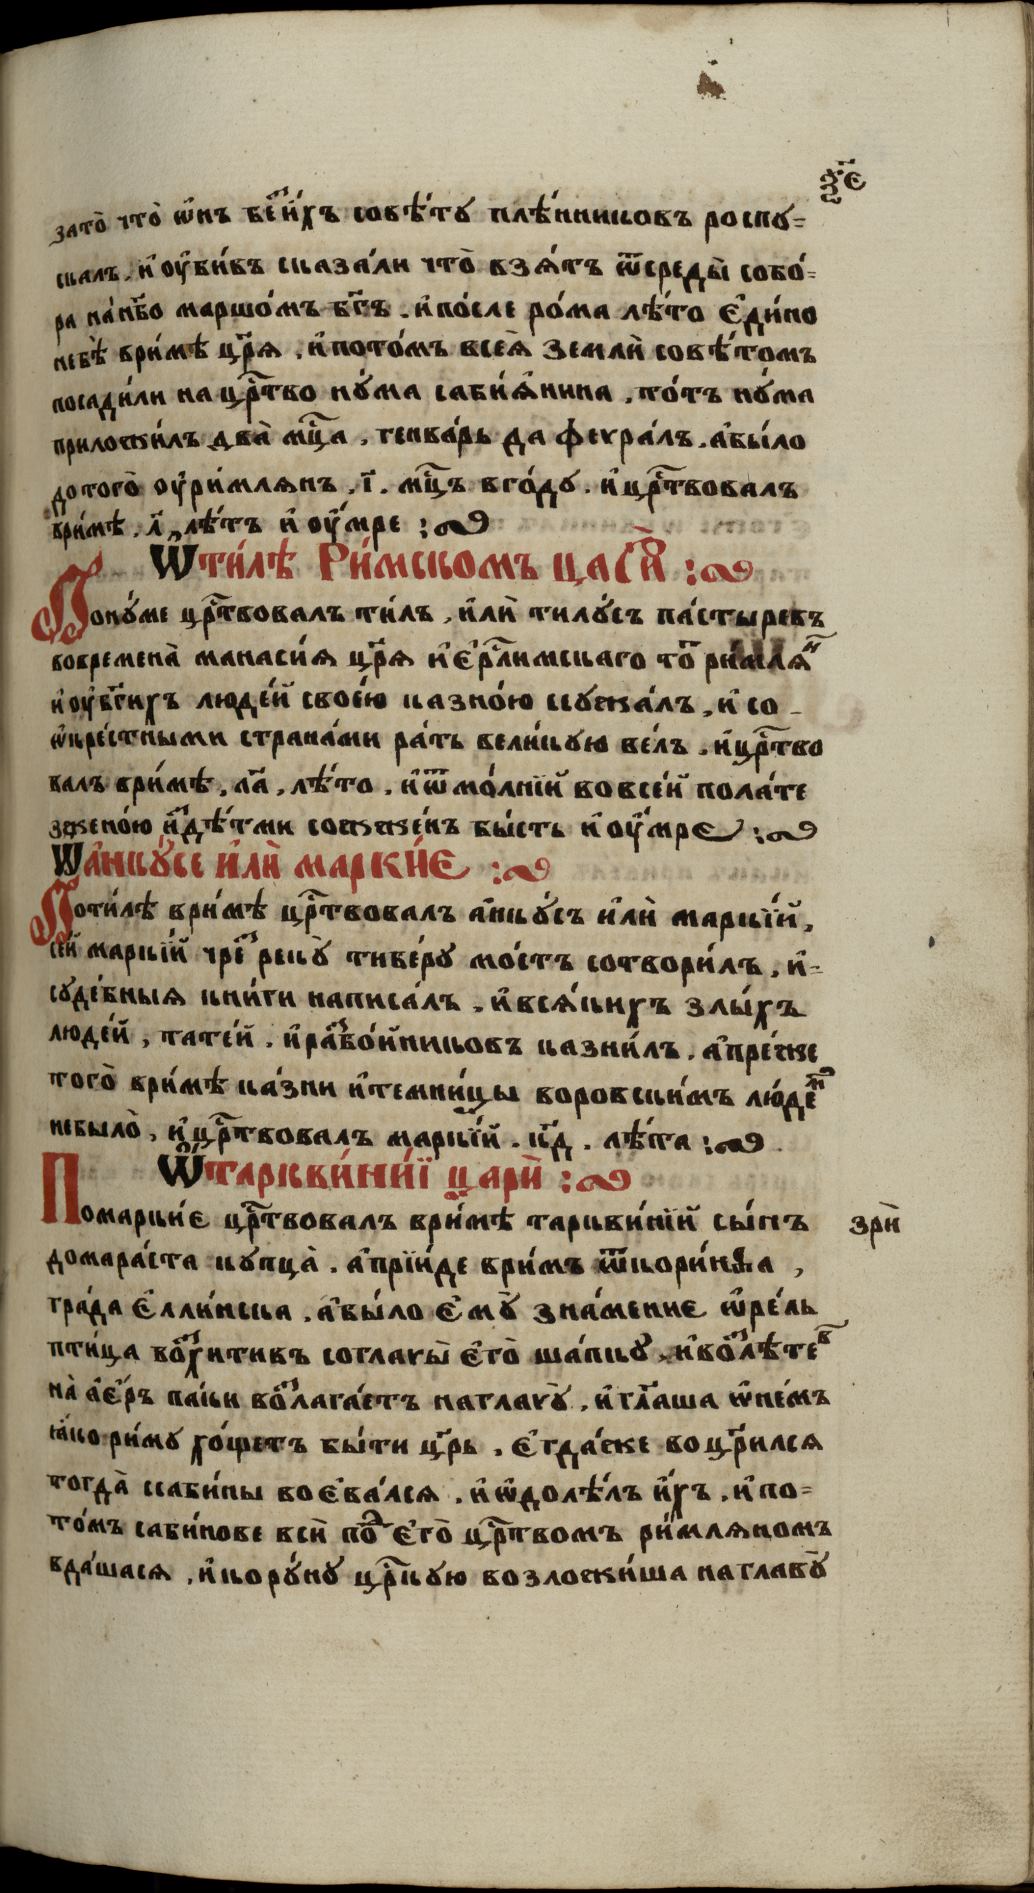 ѯ҃є
зато̀ что̀ ѡ҆нъ бе́з̾ и҆́хъ совѣ́ту плѣ́нниковъ роспу-
скалъ, и҆ оу҆би́въ сказа́ли что̀ взѧ́тъ ѿ среды̀ собо́-
ра на нб҃о маршо́мъ бг҃ъ. и҆ по́сле ро́ма лѣ́то є҆ди́но
небѣ̀ в ри́мѣ цр҃ѧ, и҆ пото́мъ всеѧ̀ земли̾ совѣ́томъ
посади́ли на цр҃тво ну́ма саби́ѧ́нина, то́тъ ну́ма
приложи́лъ два̀ мц҃а, генва́рь да феѵра́лъ. а҆ бы́ло
до того̀ оу҆ ри́млѧнъ, і҃. мц҃ъ в го́ду. и҆ цр҃твовалъ
в ри́мѣ. л҃ лѣ́тъ и҆ оу҆́мре :~
Ѡ ти́лѣ Ри́мскомъ цаси :~
По ну́ме цр҃твовалъ ти́лъ, и҆ли̾ тилу́съ па́стыревъ
во времена̀ манаси́ѧ цр҃ѧ и҆є҆рл҃имскаго то̾ римлѧⷩ
и҆ оу҆бг҃ихъ люде́й свое́ю казно́ю ссужа́лъ, и҆ со
ѡ҆кре́стными страна́ми ра́ть вели́кую ве́лъ. и҆ цр҃тво
валъ в ри́мѣ, л҃а, лѣ́то, и҆ ѿ мо́лнїй во все́й пола́те
з жено́ю и҆ з̾ дѣ́тми сожже́нъ бы́сть и҆ оу҆́мре :~
Ѡ а҆нку́се и҆ли̾ марки́е :~
По ти́лѣ в ри́мѣ цр҃твовалъ а҆нку́съ и҆ли̾ маркі́й,
се́й маркі́й чре́з̾ реку̀ тибе́ру мо́стъ сотвори́лъ, и҆-
суде́бныѧ кни́ги написа́лъ, и҆ всѧ́кихъ злы́хъ
люде́й, тате́й, и҆ раз̾бо́йниковъ казни́лъ. а҆ пре́же
того̀ в ри́мѣ ка́зни и҆ темни́цы воровски́мъ лю́деⷨ
не было̀, и҆ цр҃твовалъ маркі́й. к҃д. лѣ́та :~
Ѡ таркви́нїї цари̾ :~
По марки́е цр҃твовалъ в ри́мѣ таркви́нїй сы́нъ
зри̾
домара́ста купца̀. а҆ прїи́де в ри́мъ ѿ кори́нѳа,
гра́да є҆лли́нска, а҆ бы́ло є҆му̀ зна́мение ѡ҆ре́лъ
пти́ца вос̾хитивъ со главы̀ є҆го̀ ша́пку, и҆ воз̾лѣтеⷡ
на̀ а҆е́ръ па́ки воз̾лага́етъ на главу̀, и҆ гл҃аша ѡ҆ не́мъ
ꙗ҆́ко ри́му хо́щетъ бы́ти цр҃ь, є҆гда́же воцр҃илсѧ
тогда̀ ссаби́ны воева́лсѧ, и҆ ѡ҆долѣ́лъ и҆́хъ, и҆ по-
то́мъ саби́нове вси̾ под̾ є҆го̀ цр҃твомъ ри́млѧномъ
вда́шасѧ, и҆ кору́ну цр҃кую возложи́ша на главу̀